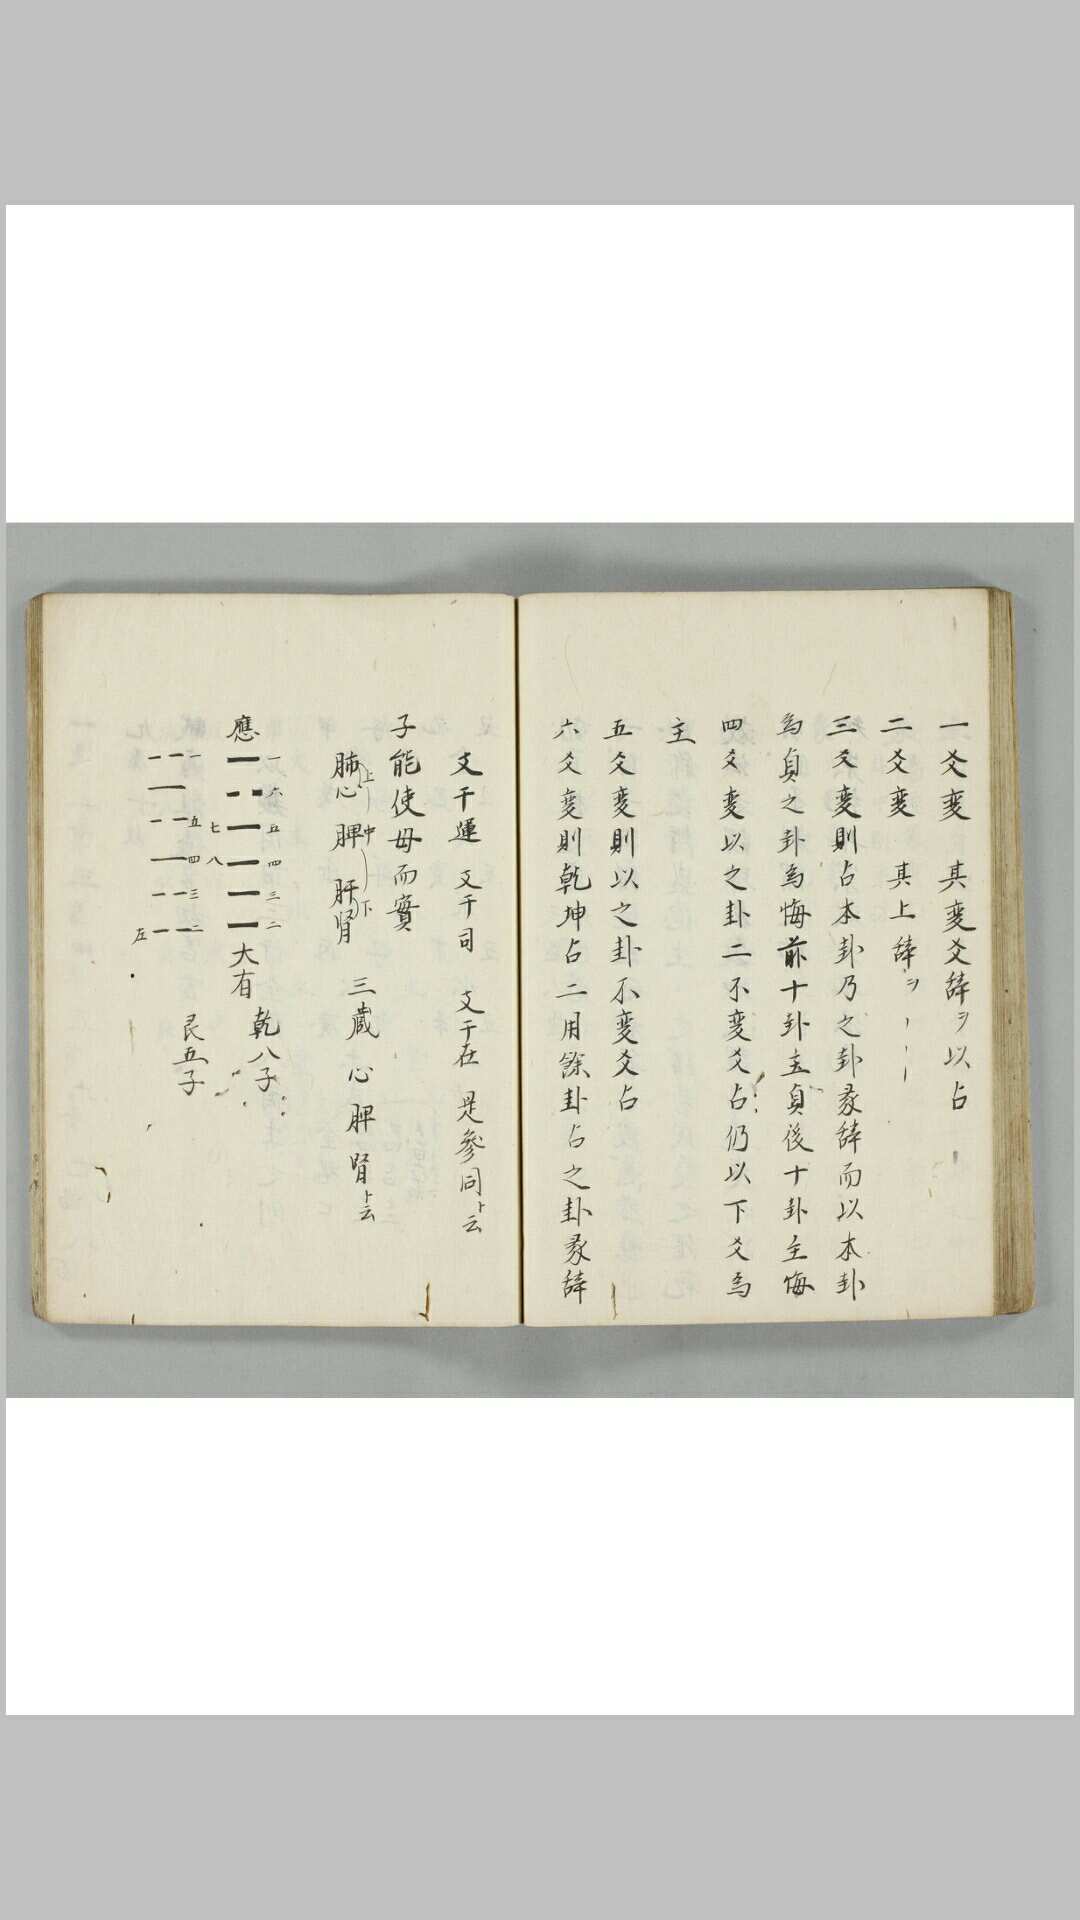 一爻変 其変爻辞ヲ以占
二爻変 其上辞ヲ
三爻変則占本卦乃之卦彖辞而以本卦
為貞之卦為悔前十卦主貞後十卦主悔
四爻変以之卦二不変爻占仍以下爻為
主
五爻変則以之卦不変爻占
六爻変則乾坤占二用餘卦占之卦彖辞
支干運 支干司 支干在 是參同ト云
子能使母而實
肺心 脾 肝腎 三蔵 心 脾 腎ト云
上 中 下
應
一
六
五
四
三
二
大有
乾八子
七
八
一
五
四
三
二
艮五子
左